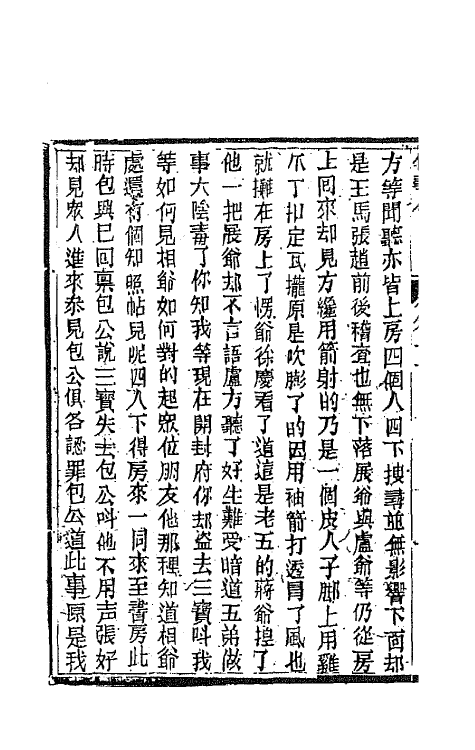 方等聞聽亦皆上房四個人四下搜尋並無影響下面却
是王馬張趙前後稽查也無下落展爺與盧爺等仍從房
上回來却見方纔用箭射的乃是一個皮人子脚上用雞
爪丁扣定瓦攏原是吹膨了的因用袖箭打透冒了風也
就攤在房上了愣爺徐慶看了道這是老五的蔣爺揑了
他一把展爺却不言語盧方聽了好生難受暗道五弟做
事太陰毒了你知我等現在開封府你却盜去三寶叫我
等如何見相爺如何對的起眾位朋友他那裡知道相爺
處還有個知照帖兒呢四人下得房來一同來至書房此
時包興已回稟包公說三寶失去包公叫他不用声張好
却見眾人進來叅見包公俱各認罪包公道此事原是我